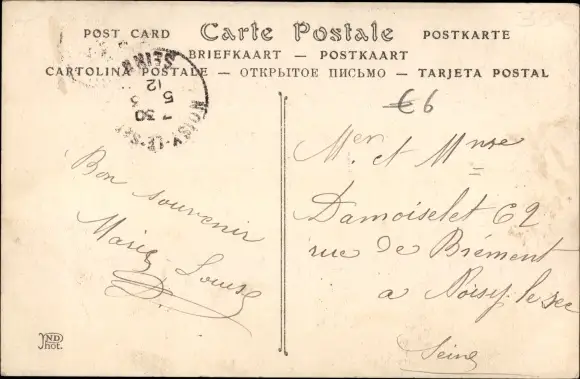 POST CARD Carte Postale POSTKARTE
BRIEFKAART — POSTKAART
CARTOLINA POSTALE — ОТКРЫТОЕ ПИСЬМО — TARJETA POSTAL
NOISY-LE-SEC
SEINE
30
5
12
€6
Bon souvenir
Marie Louise
D.
Mer et Mme
Damoiselet 62
rue De Brément
a Noisy le sec
Seine
ND
Phot.